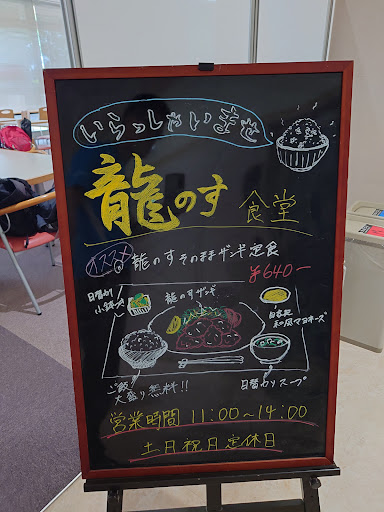 いらっしゃいませ
龍のす 食堂
オススメ 龍のすそのままザンギ定食
¥640-
日替わり
小鉢
龍のすザンギ
自家製
和風マヨネーズ
ご飯
大盛り無料!!
日替わりスープ
営業時間 11:00~14:00
土日祝日定休日